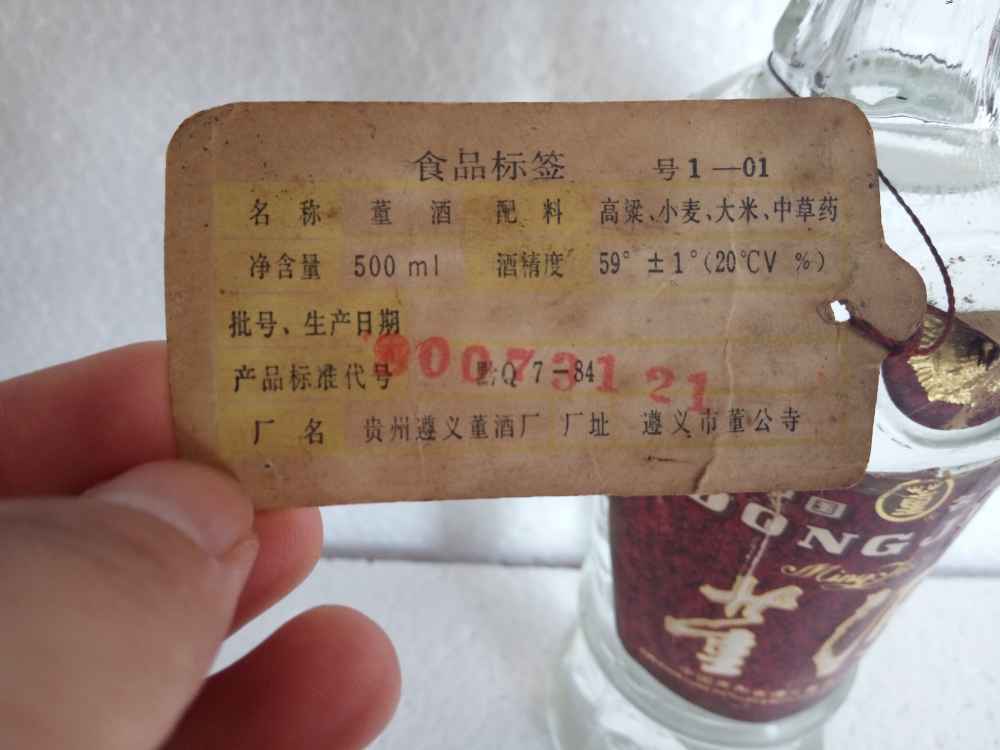 食品标签 号1—01
名称 董酒 配料 高粱、小麦、大米、中草药
净含量 500ml 酒精度 59°±1°(20℃V %)
批号、生产日期
产品标准代号 黔Q7-84
00731 21
厂名 贵州遵义董酒厂 厂址 遵义市董公寺
国
DONG
Ming
董